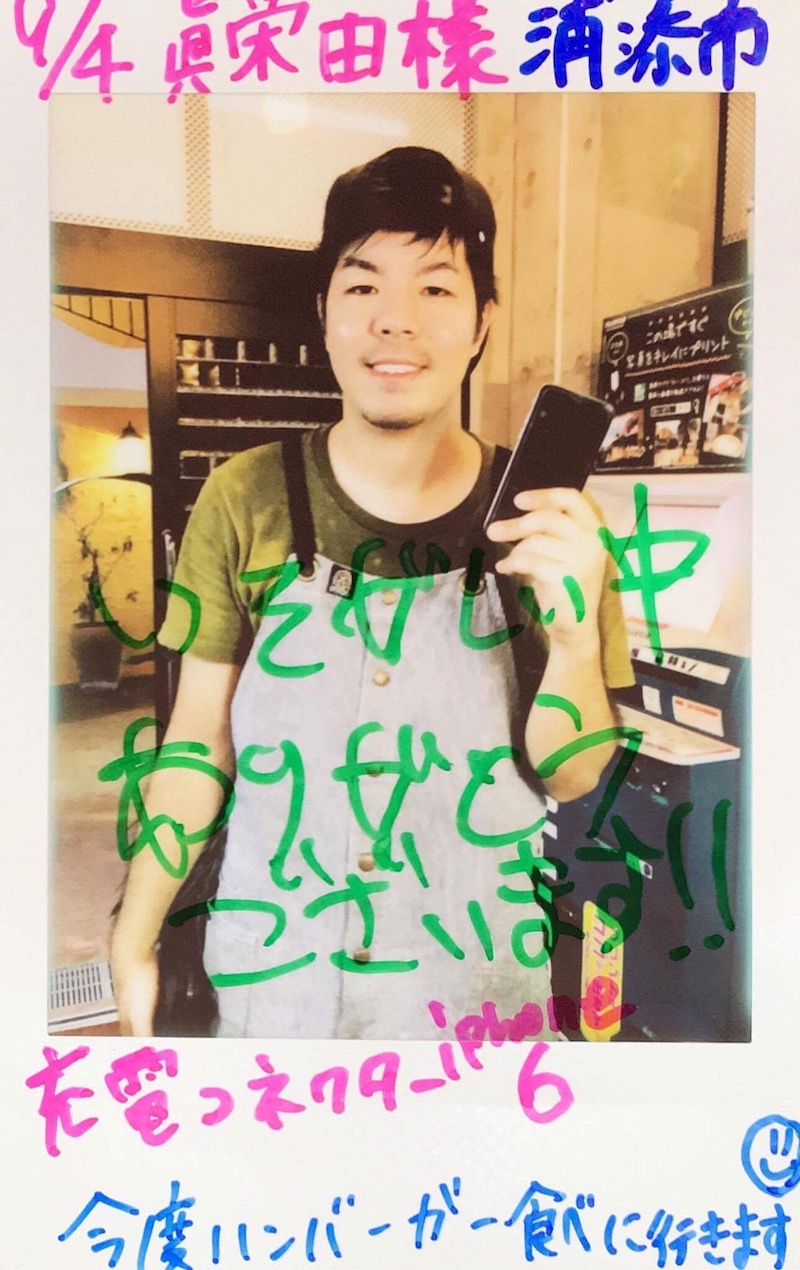 9/4 眞栄田様 浦添市
この場ですぐ
写真をキレイにプリント
いそがしい中
ありがとう
ございます!!
充電コネクター iphone 6
今度ハンバーガー食べに行きます